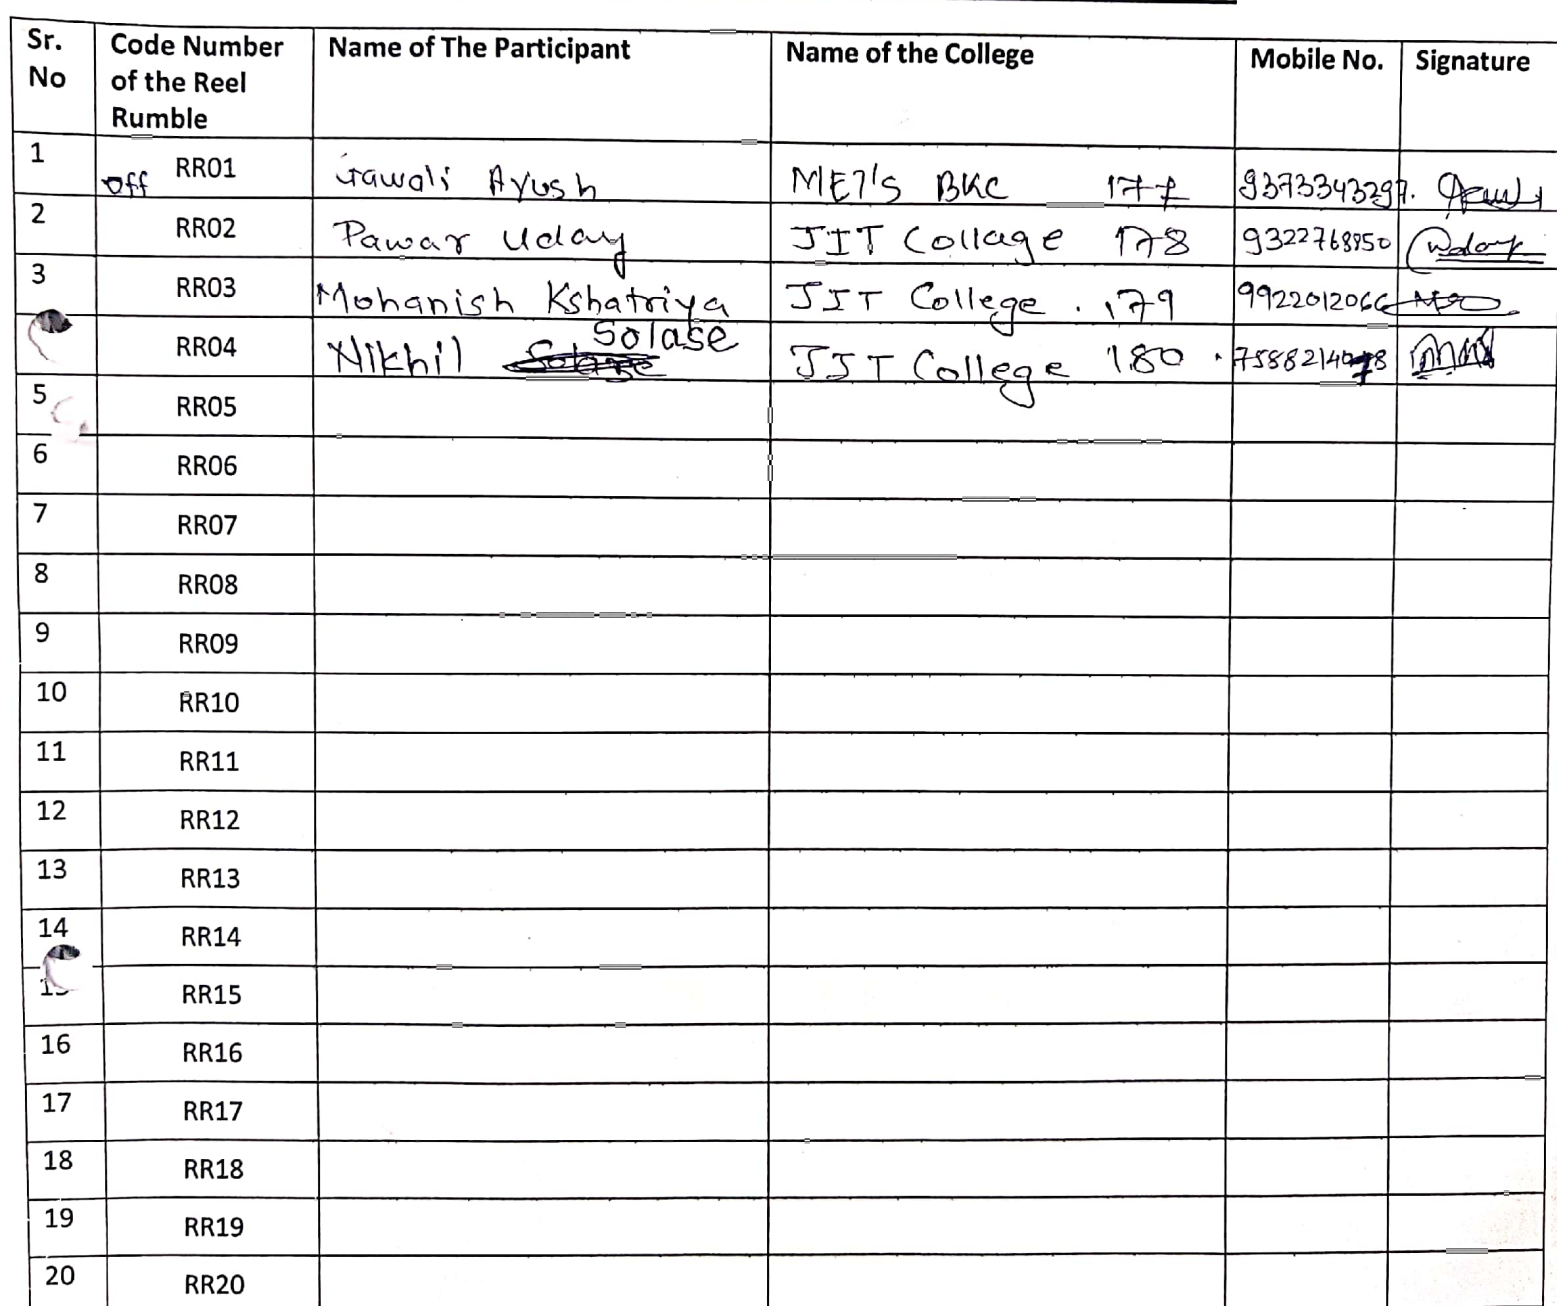 Sr. No Code Number of the Reel Rumble Name of The Participant Name of the College Mobile No. Signature
1 off RR01 Gawali Ayush MET's BKC 177 9373343297.
2 RR02 Pawar Uday JIT Collage 178 9322768950 Uday
3 RR03 Mohanish Kshatriya JIT College . 179 9922012066
RR04 Nikhil Solase JIT College 180 . 7588214078
5 RR05
6 RR06
7 RR07
8 RR08
9 RR09
10 RR10
11 RR11
12 RR12
13 RR13
14 RR14
15 RR15
16 RR16
17 RR17
18 RR18
19 RR19
20 RR20